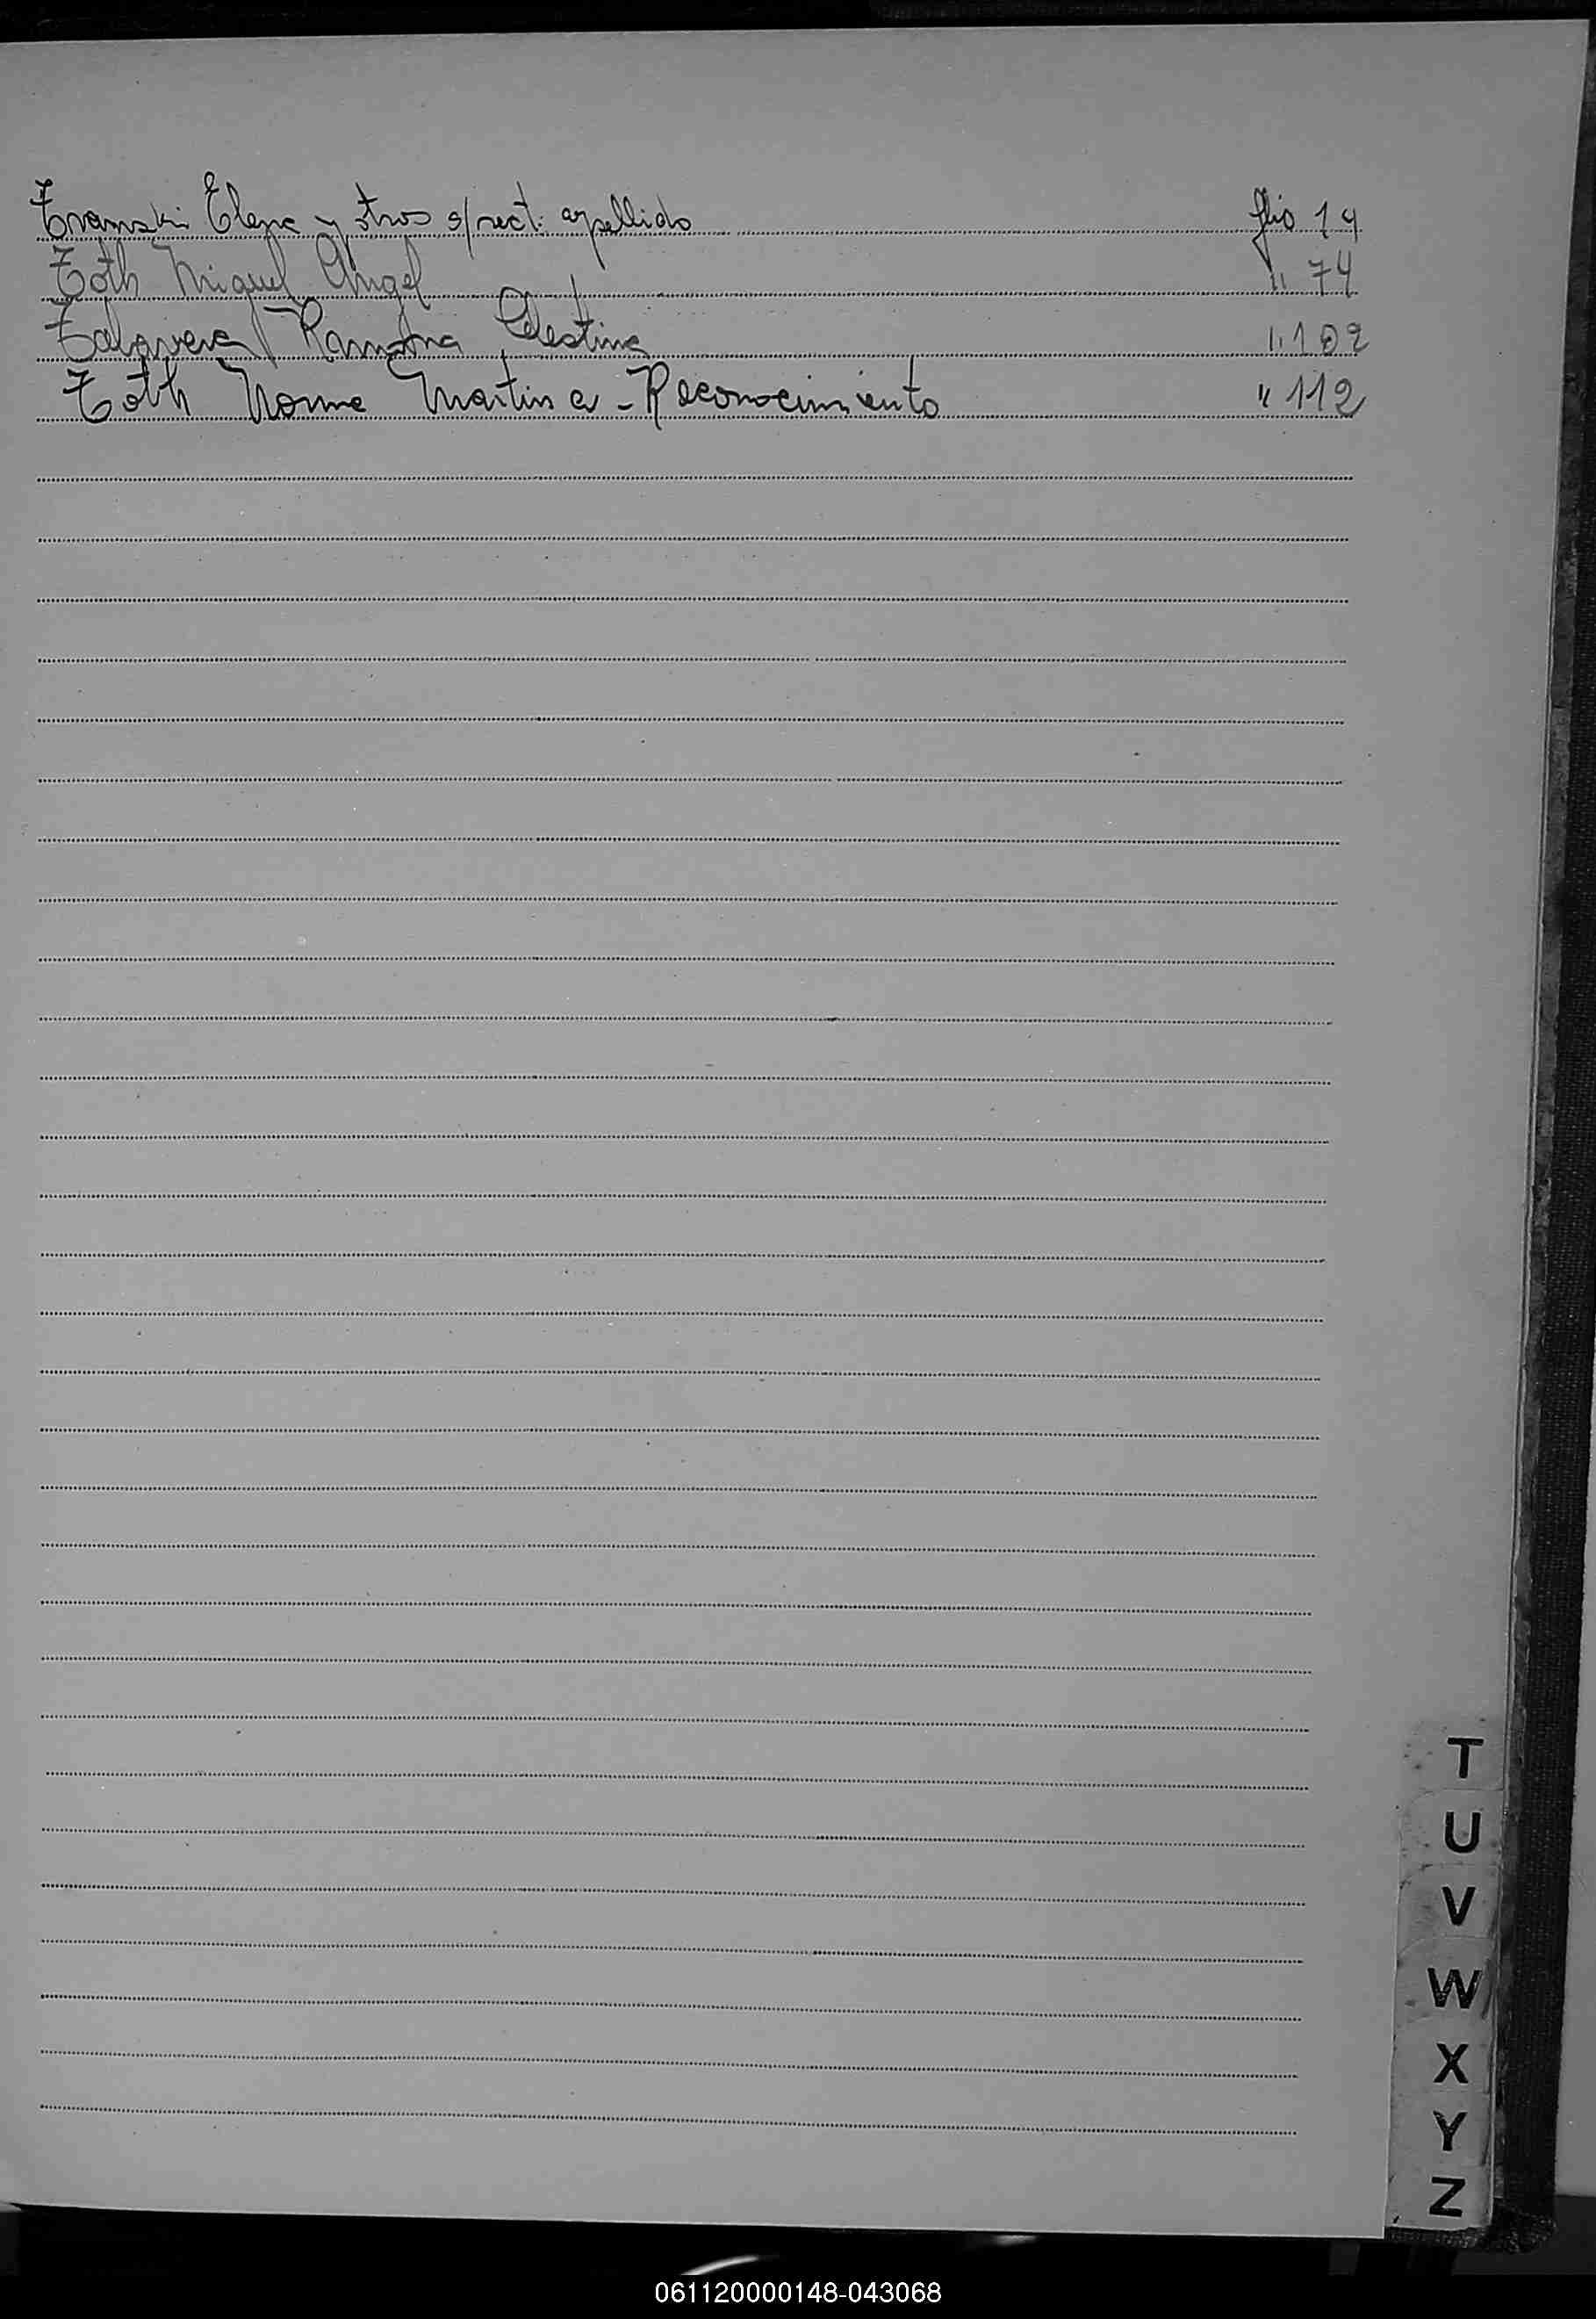 Tramski Elena y otros s/rect: apellido flio 14
Toth Miguel Angel " 74
Talavera Ramona Celestina " 102
Toth Norma Martina - Reconocimiento " 112
T
U
V
W
X
Y
Z
061120000148-043068